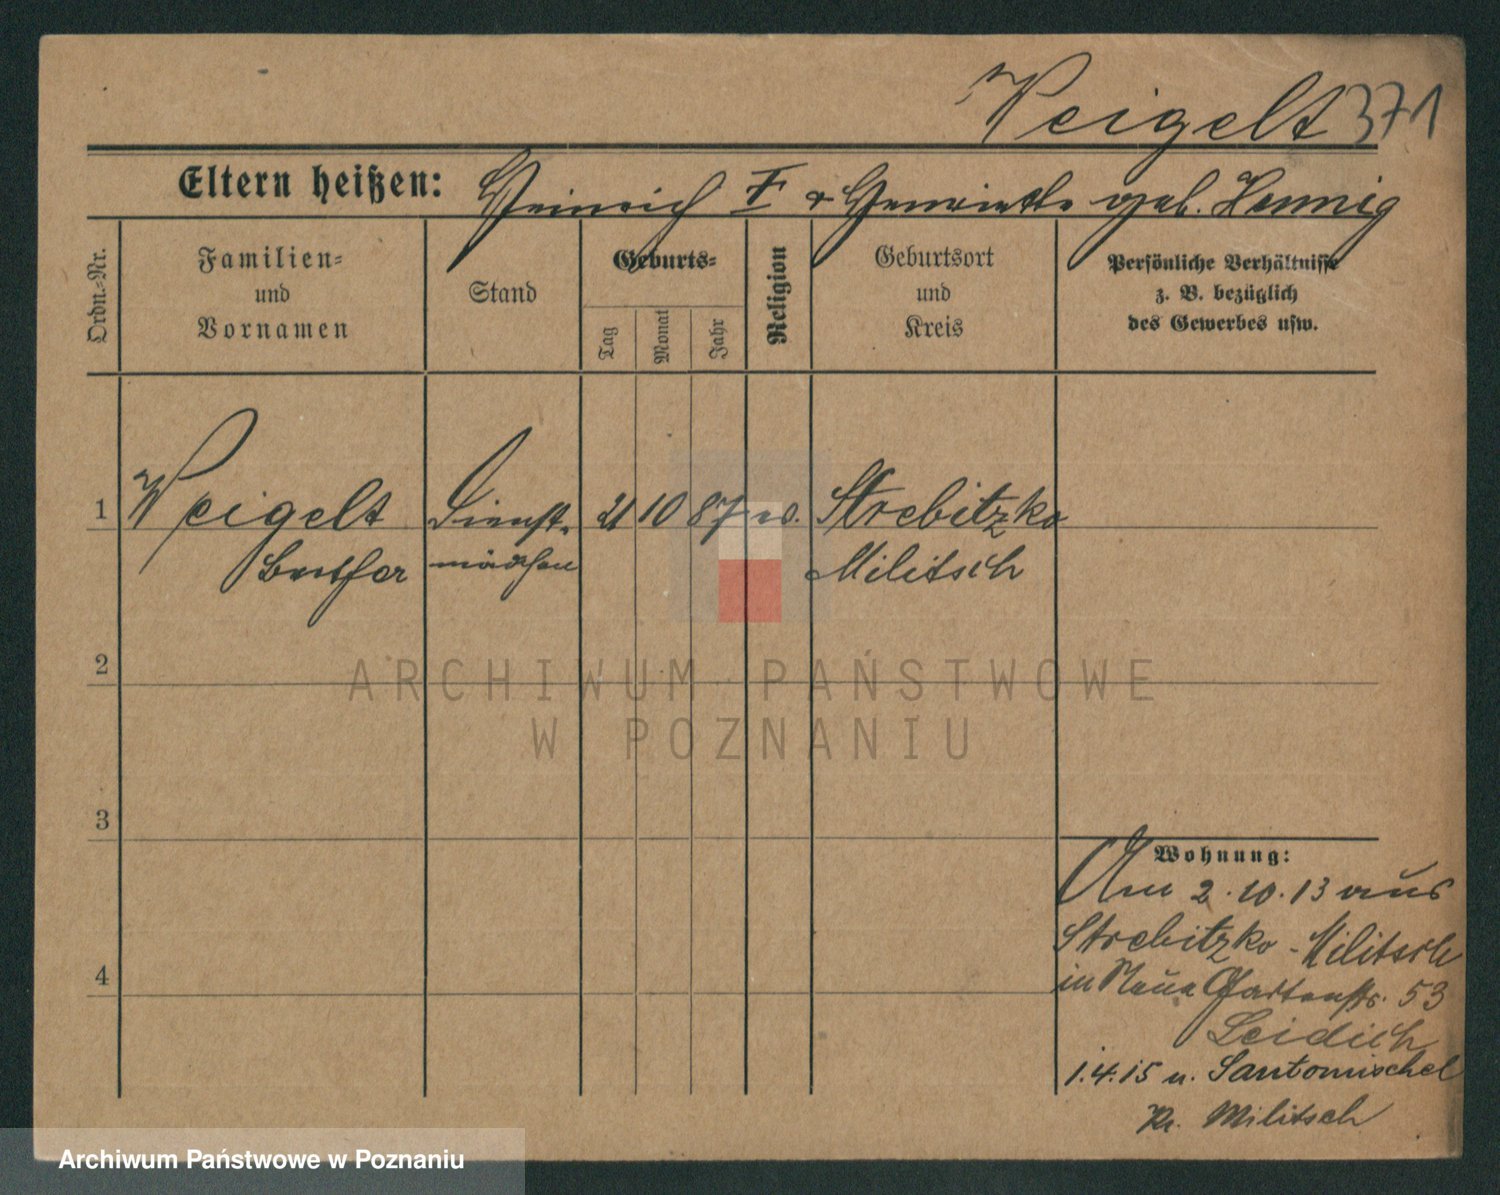 Weigelt 371
Eltern heißen: Heinrich F & Henriette geb. Hennig
Ordn.-Nr.
Familien- und Vornamen
Stand
Geburts-
Tag
Monat
Jahr
Religion
Geburtsort und Kreis
Persönliche Verhältnisse
z. B. bezüglich
des Gewerbes usw.
1 Weigelt Dienst- 21 10 87 ev. Strebitzko
Bertha mädchen Militsch
2
ARCHIWUM PAŃSTWOWE
W POZNANIU
3
Wohnung:
Am 2.10.13 aus
Strebitzko - Militsch
4
in Neue Gartenstr. 53
Leidich
1.4.15 n. Santomischel
Kr. Militsch
Archiwum Państwowe w Poznaniu